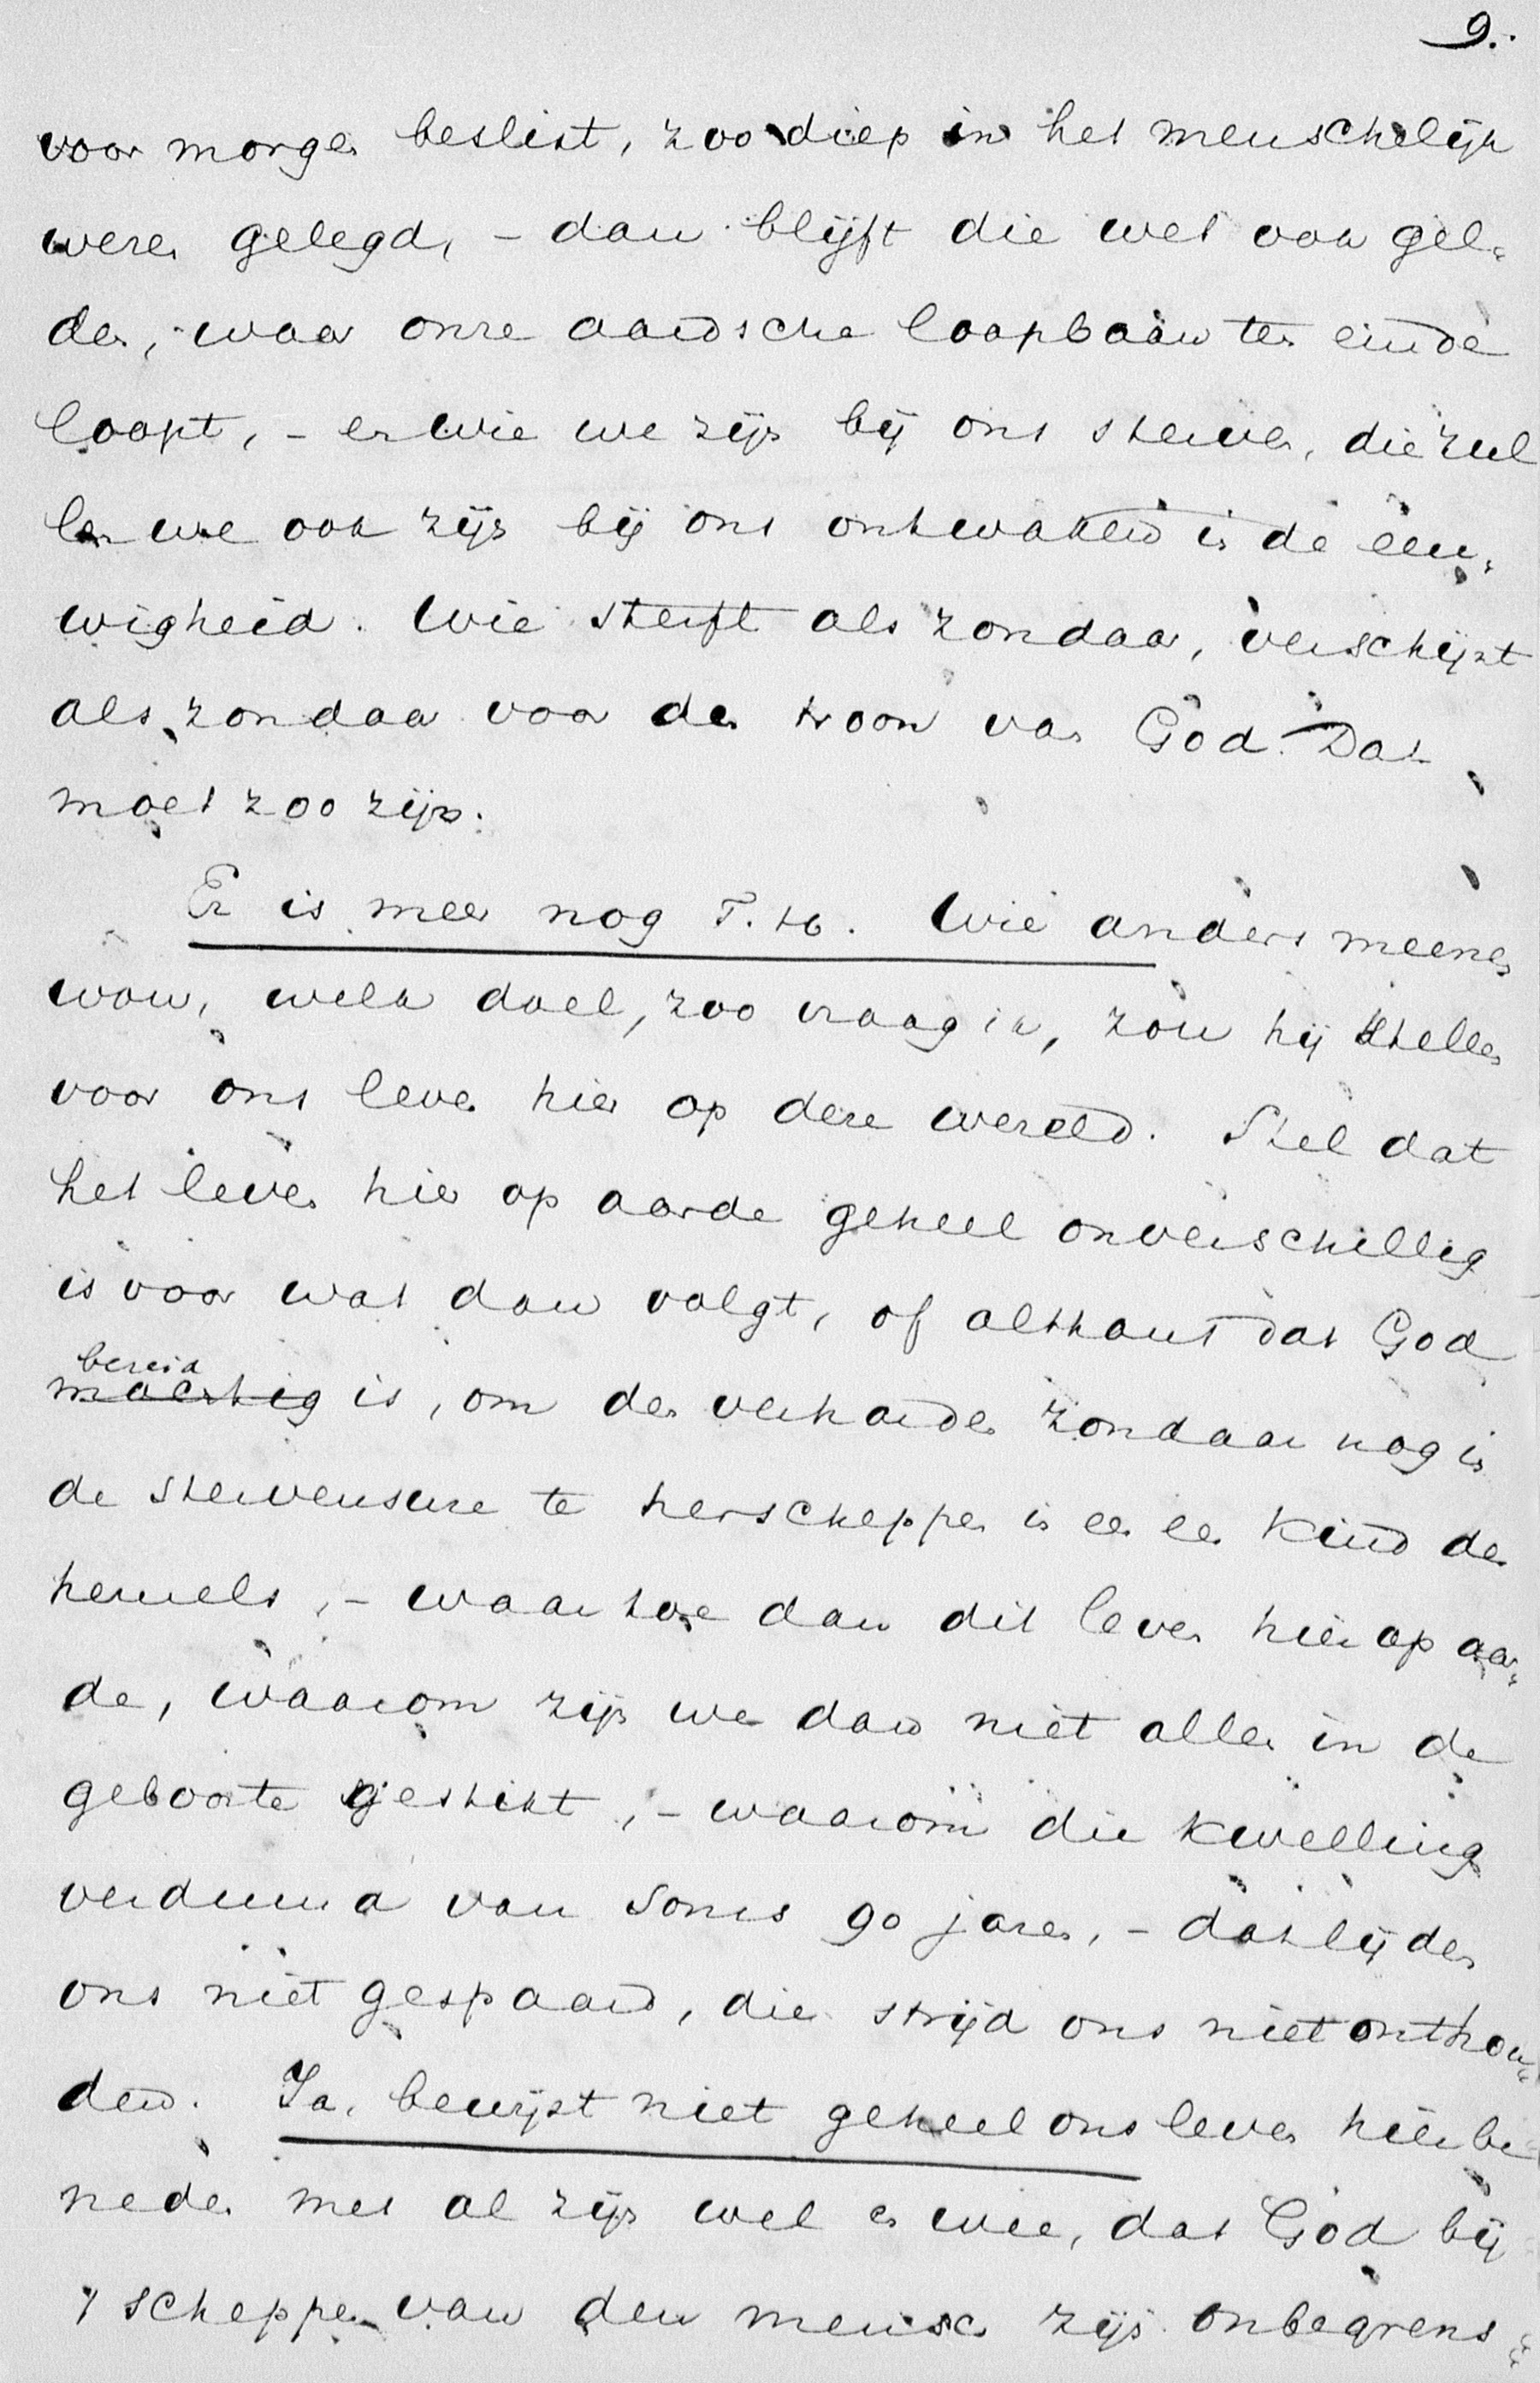 9.
voor morgen beslist, zoo diep in het menschelijk
wezen gelegd, - dan blijft die wet ook gel-
den, waar onze aardsche loopbaan ten einde
loopt, - en wie we zijn bij ons sterven, die zul
len we ook zijn bij ons ontwaken in de eeu-
wigheid. Wie sterft als zondaar, verschijnt
als zondaar voor den troon van God. Dat
moet zoo zijn.
Er is meer nog T. H. Wie anders meenen
wou, welk doel, zoo vraag ik, zou hij stellen
voor ons leven hier op deze wereld. Stel dat
het leven hier op aarde geheel onverschillig
is voor wat dan volgt, of althans dat God
bereid
machtig is, om den verharden zondaar nog in
de stervensure te herscheppen in een kind des
hemels, - waartoe dan dit leven hier op aar-
de, waarom zijn we dan niet allen in de
geboorte gestikt, - waarom die kwelling
verduurd van soms 90 jaren, - dat lijden
ons niet gespaard, die strijd ons niet onthou-
den. Ja, bewijst niet geheel ons leven hier be
neden met al zijn wel en wee, dat God bij
't scheppen van den mensch zijn onbegrens-